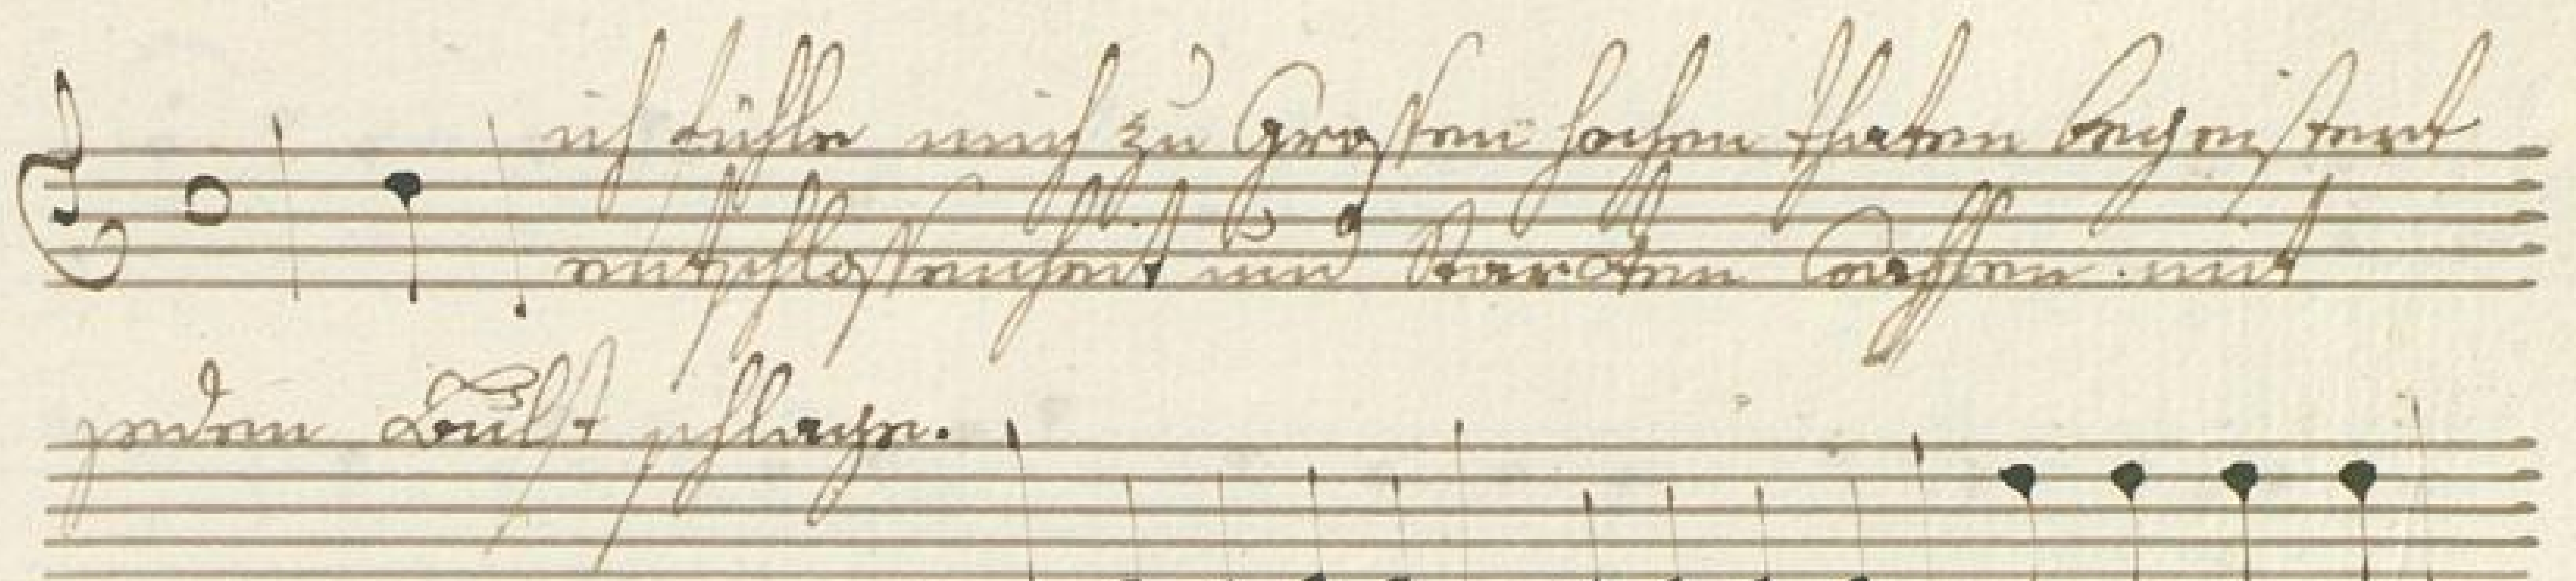 ich fühle mich zu Grossen hochen thaten begeistert
entschlossenheit und Starcken waffen mit
jedem Bulst schlage.